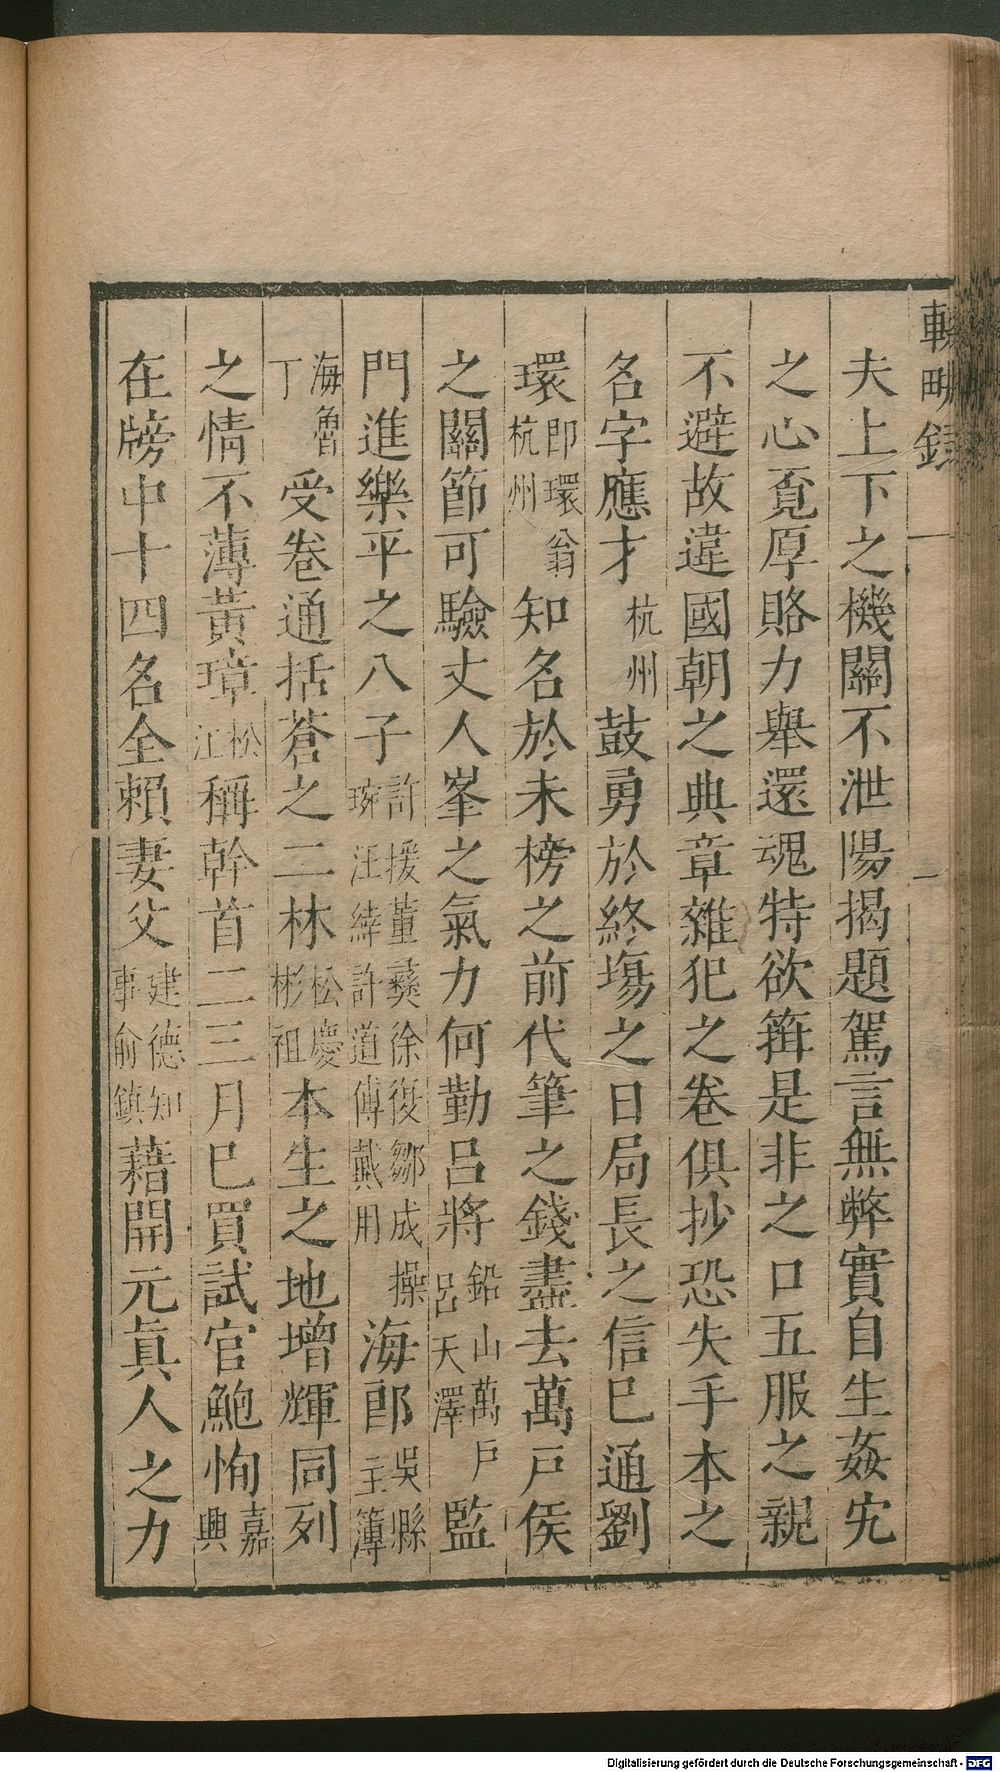 輟畊錄
夫上下之機關不泄陽揭題駕言無弊實自生姦宄
之心覔厚賂力舉還魂特欲箝是非之口五服之親
不避故違國朝之典章雜犯之卷俱抄恐失手本之
名字應才杭州鼓勇於終塲之日局長之信巳通劉
環即環翁杭州知名於未榜之前代筆之錢盡去萬戸侯
之關節可驗丈人峯之氣力何勤呂將鉛山萬戸呂天澤監
門進樂平之八子許援董彝徐復鄒成操琬汪緯許道傅戴用海郎吳縣主簿
海魯丁受卷通括蒼之二林松慶彬祖本生之地增輝同列
之情不薄黃璋松江稱幹首二三月巳買試官鮑恂嘉興
在牓中十四名全賴妻父建德知事俞鎮藉開元眞人之力
Digitalisierung gefördert durch die Deutsche Forschungsgemeinschaft - DFG